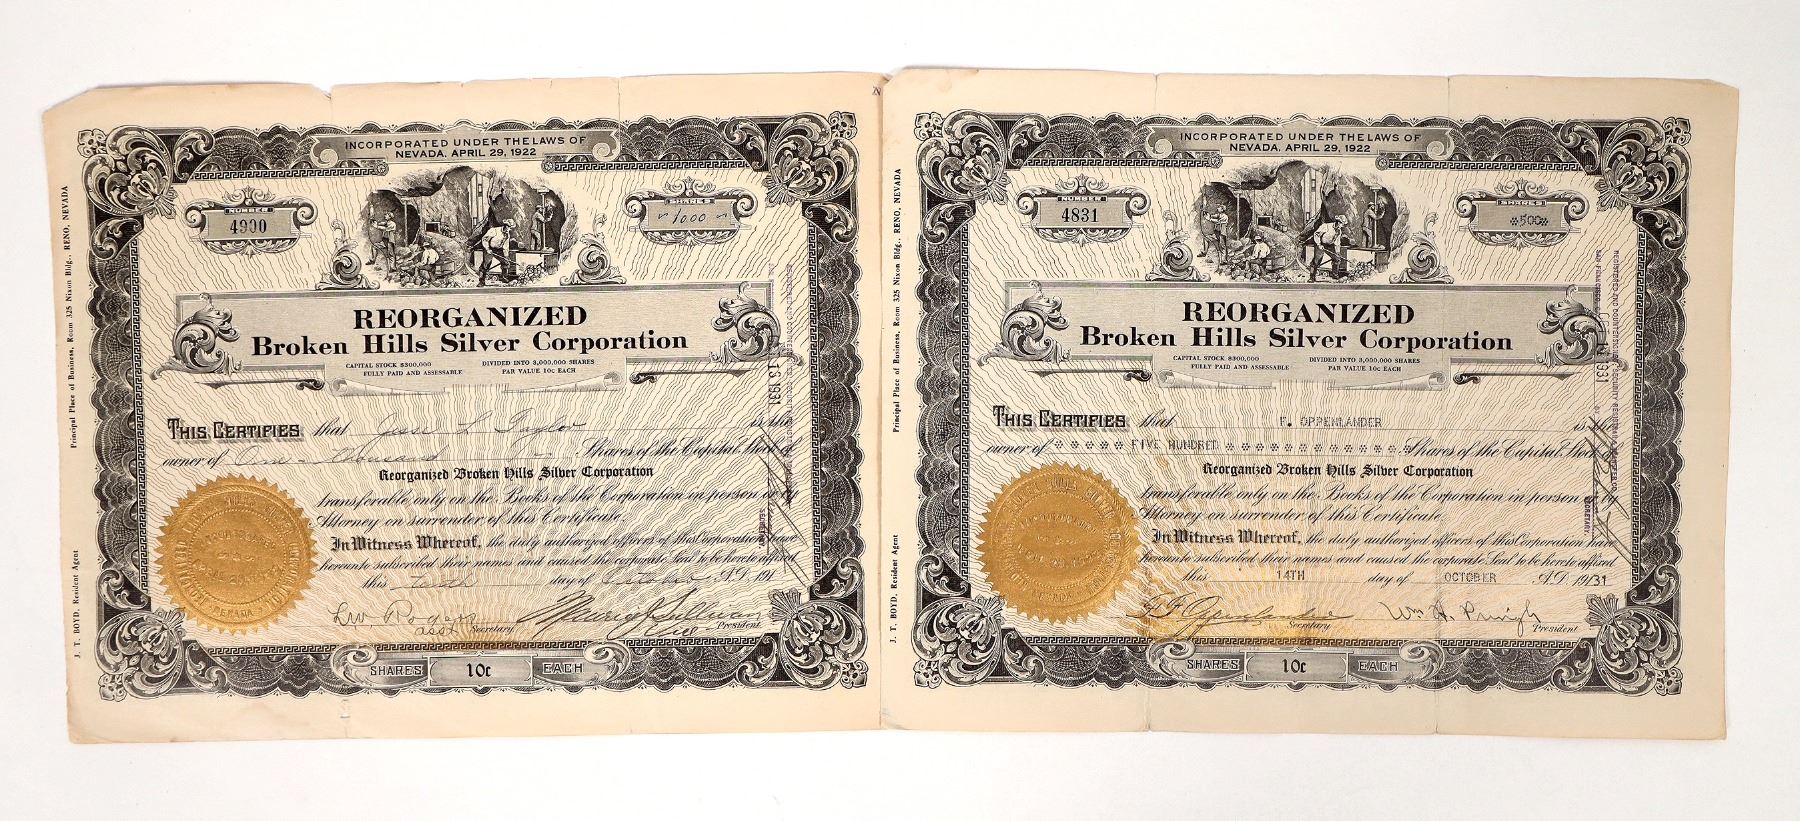 INCORPORATED UNDER THE LAWS OF
NEVADA. APRIL 29, 1922
NUMBER
4900
SHARES
1000
REORGANIZED
Broken Hills Silver Corporation
CAPITAL STOCK $300,000 DIVIDED INTO 3,000,000 SHARES
FULLY PAID AND ASSESSABLE PAR VALUE 10c EACH
This Certifies that Jesse L Taylor is the
owner of One thousand Shares of the Capital Stock of
Reorganized Broken Hills Silver Corporation
transferable only on the Books of the Corporation in person or by
Attorney on surrender of this Certificate.
In Witness Whereof, the duly authorized officers of this Corporation have
hereunto subscribed their names and caused the corporate Seal to be hereto affixed
this tenth day of October A.D. 191
Rogers
asst Secretary President
SHARES 10c EACH
Principal Place of Business, Room 325 Nixon Bldg., RENO, NEVADA
J. T. BOYD, Resident Agent
INCORPORATED UNDER THE LAWS OF
NEVADA. APRIL 29, 1922
NUMBER
4831
SHARES
*500*
REORGANIZED
Broken Hills Silver Corporation
CAPITAL STOCK $300,000 DIVIDED INTO 3,000,000 SHARES
FULLY PAID AND ASSESSABLE PAR VALUE 10c EACH
This Certifies that F. OPPENLANDER is the
owner of FIVE HUNDRED Shares of the Capital Stock of
Reorganized Broken Hills Silver Corporation
transferable only on the Books of the Corporation in person or by
Attorney on surrender of this Certificate.
In Witness Whereof, the duly authorized officers of this Corporation have
hereunto subscribed their names and caused the corporate Seal to be hereto affixed
this 14TH day of OCTOBER A.D. 1931
Oppenlander Wm H.
Secretary President
SHARES 10c EACH
Principal Place of Business, Room 325 Nixon Bldg., RENO, NEVADA
J. T. BOYD, Resident Agent